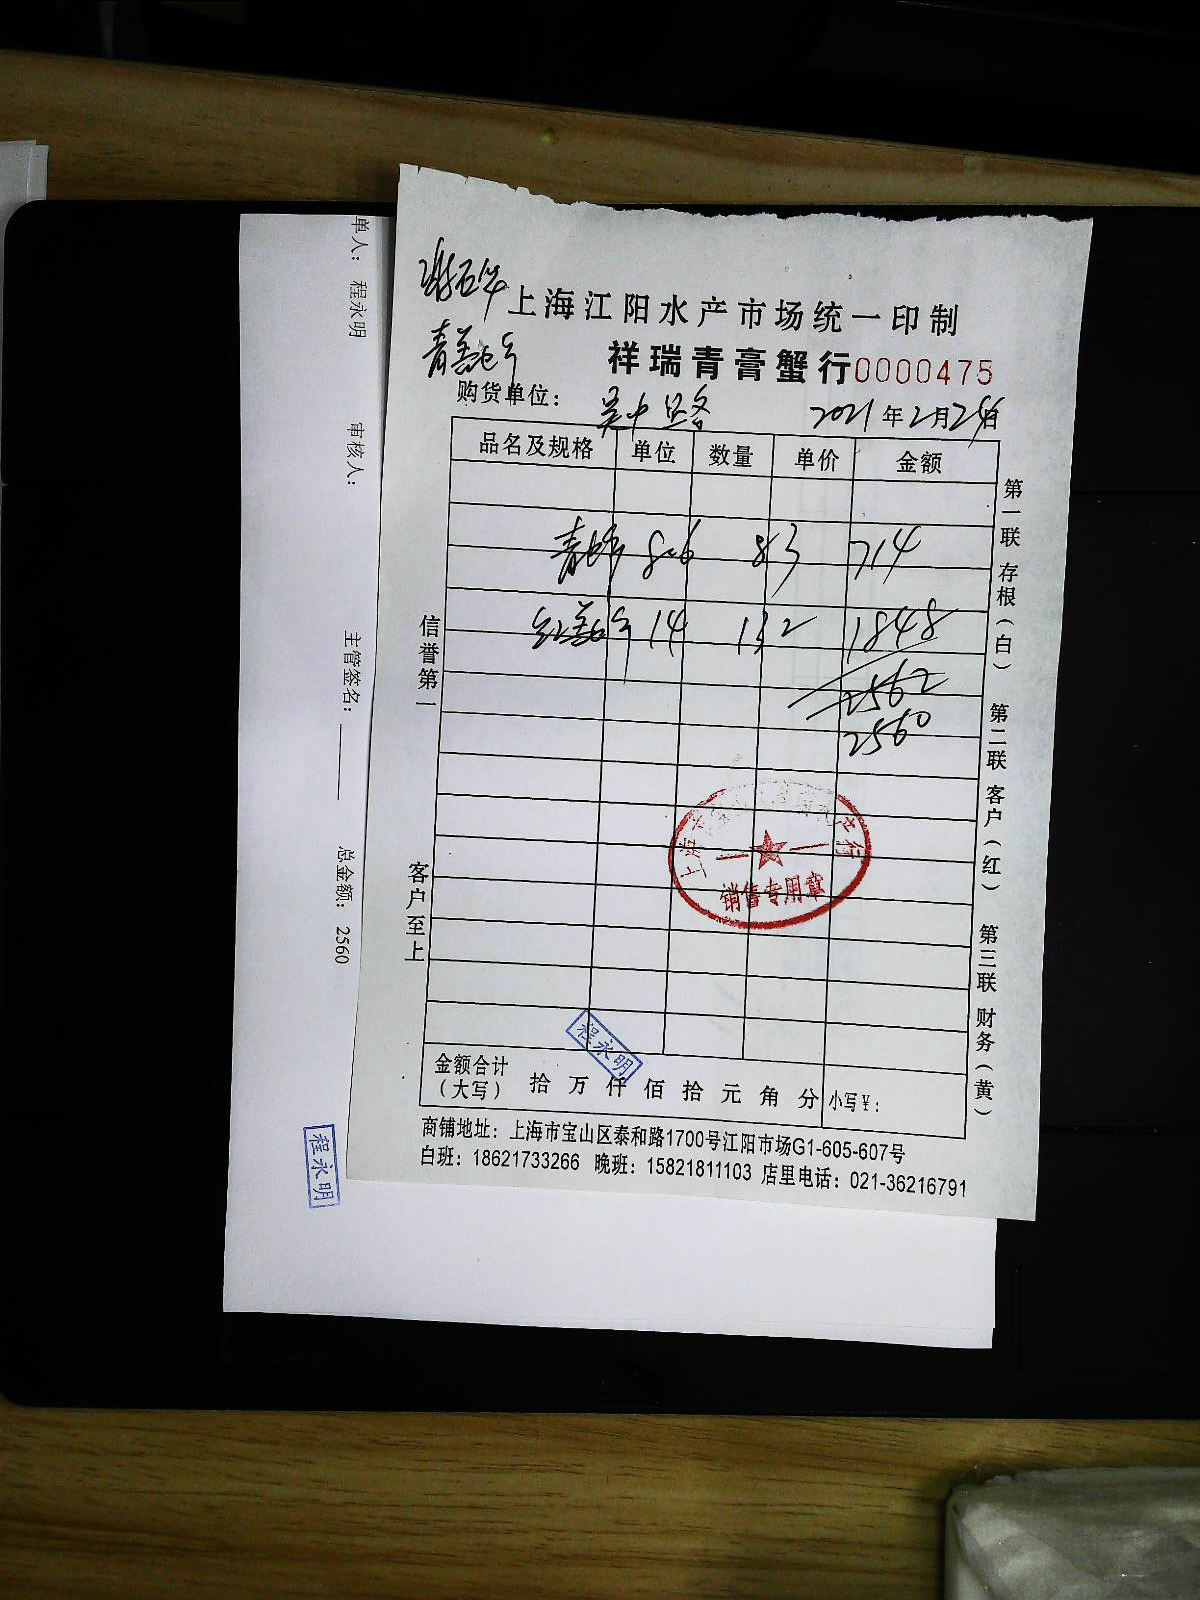 上海江阳水产市场统一印制
祥瑞青膏蟹行0000475
购货单位：
2021年2月24日
品名及规格 单位 数量 单价 金额
8.6 83 714
14 132 1848
2562
2560
信誉第一
客户至上
第一联 存根（白） 第二联 客户（红） 第三联 财务（黄）
销售专用章
程永明
金额合计（大写） 拾 万 仟 佰 拾 元 角 分 小写￥：
商铺地址：上海市宝山区泰和路1700号江阳市场G1-605-607号
白班：18621733266 晚班：15821811103 店里电话：021-36216791
单人： 程永明 审核人： 主管签名： 总金额： 2560
程永明